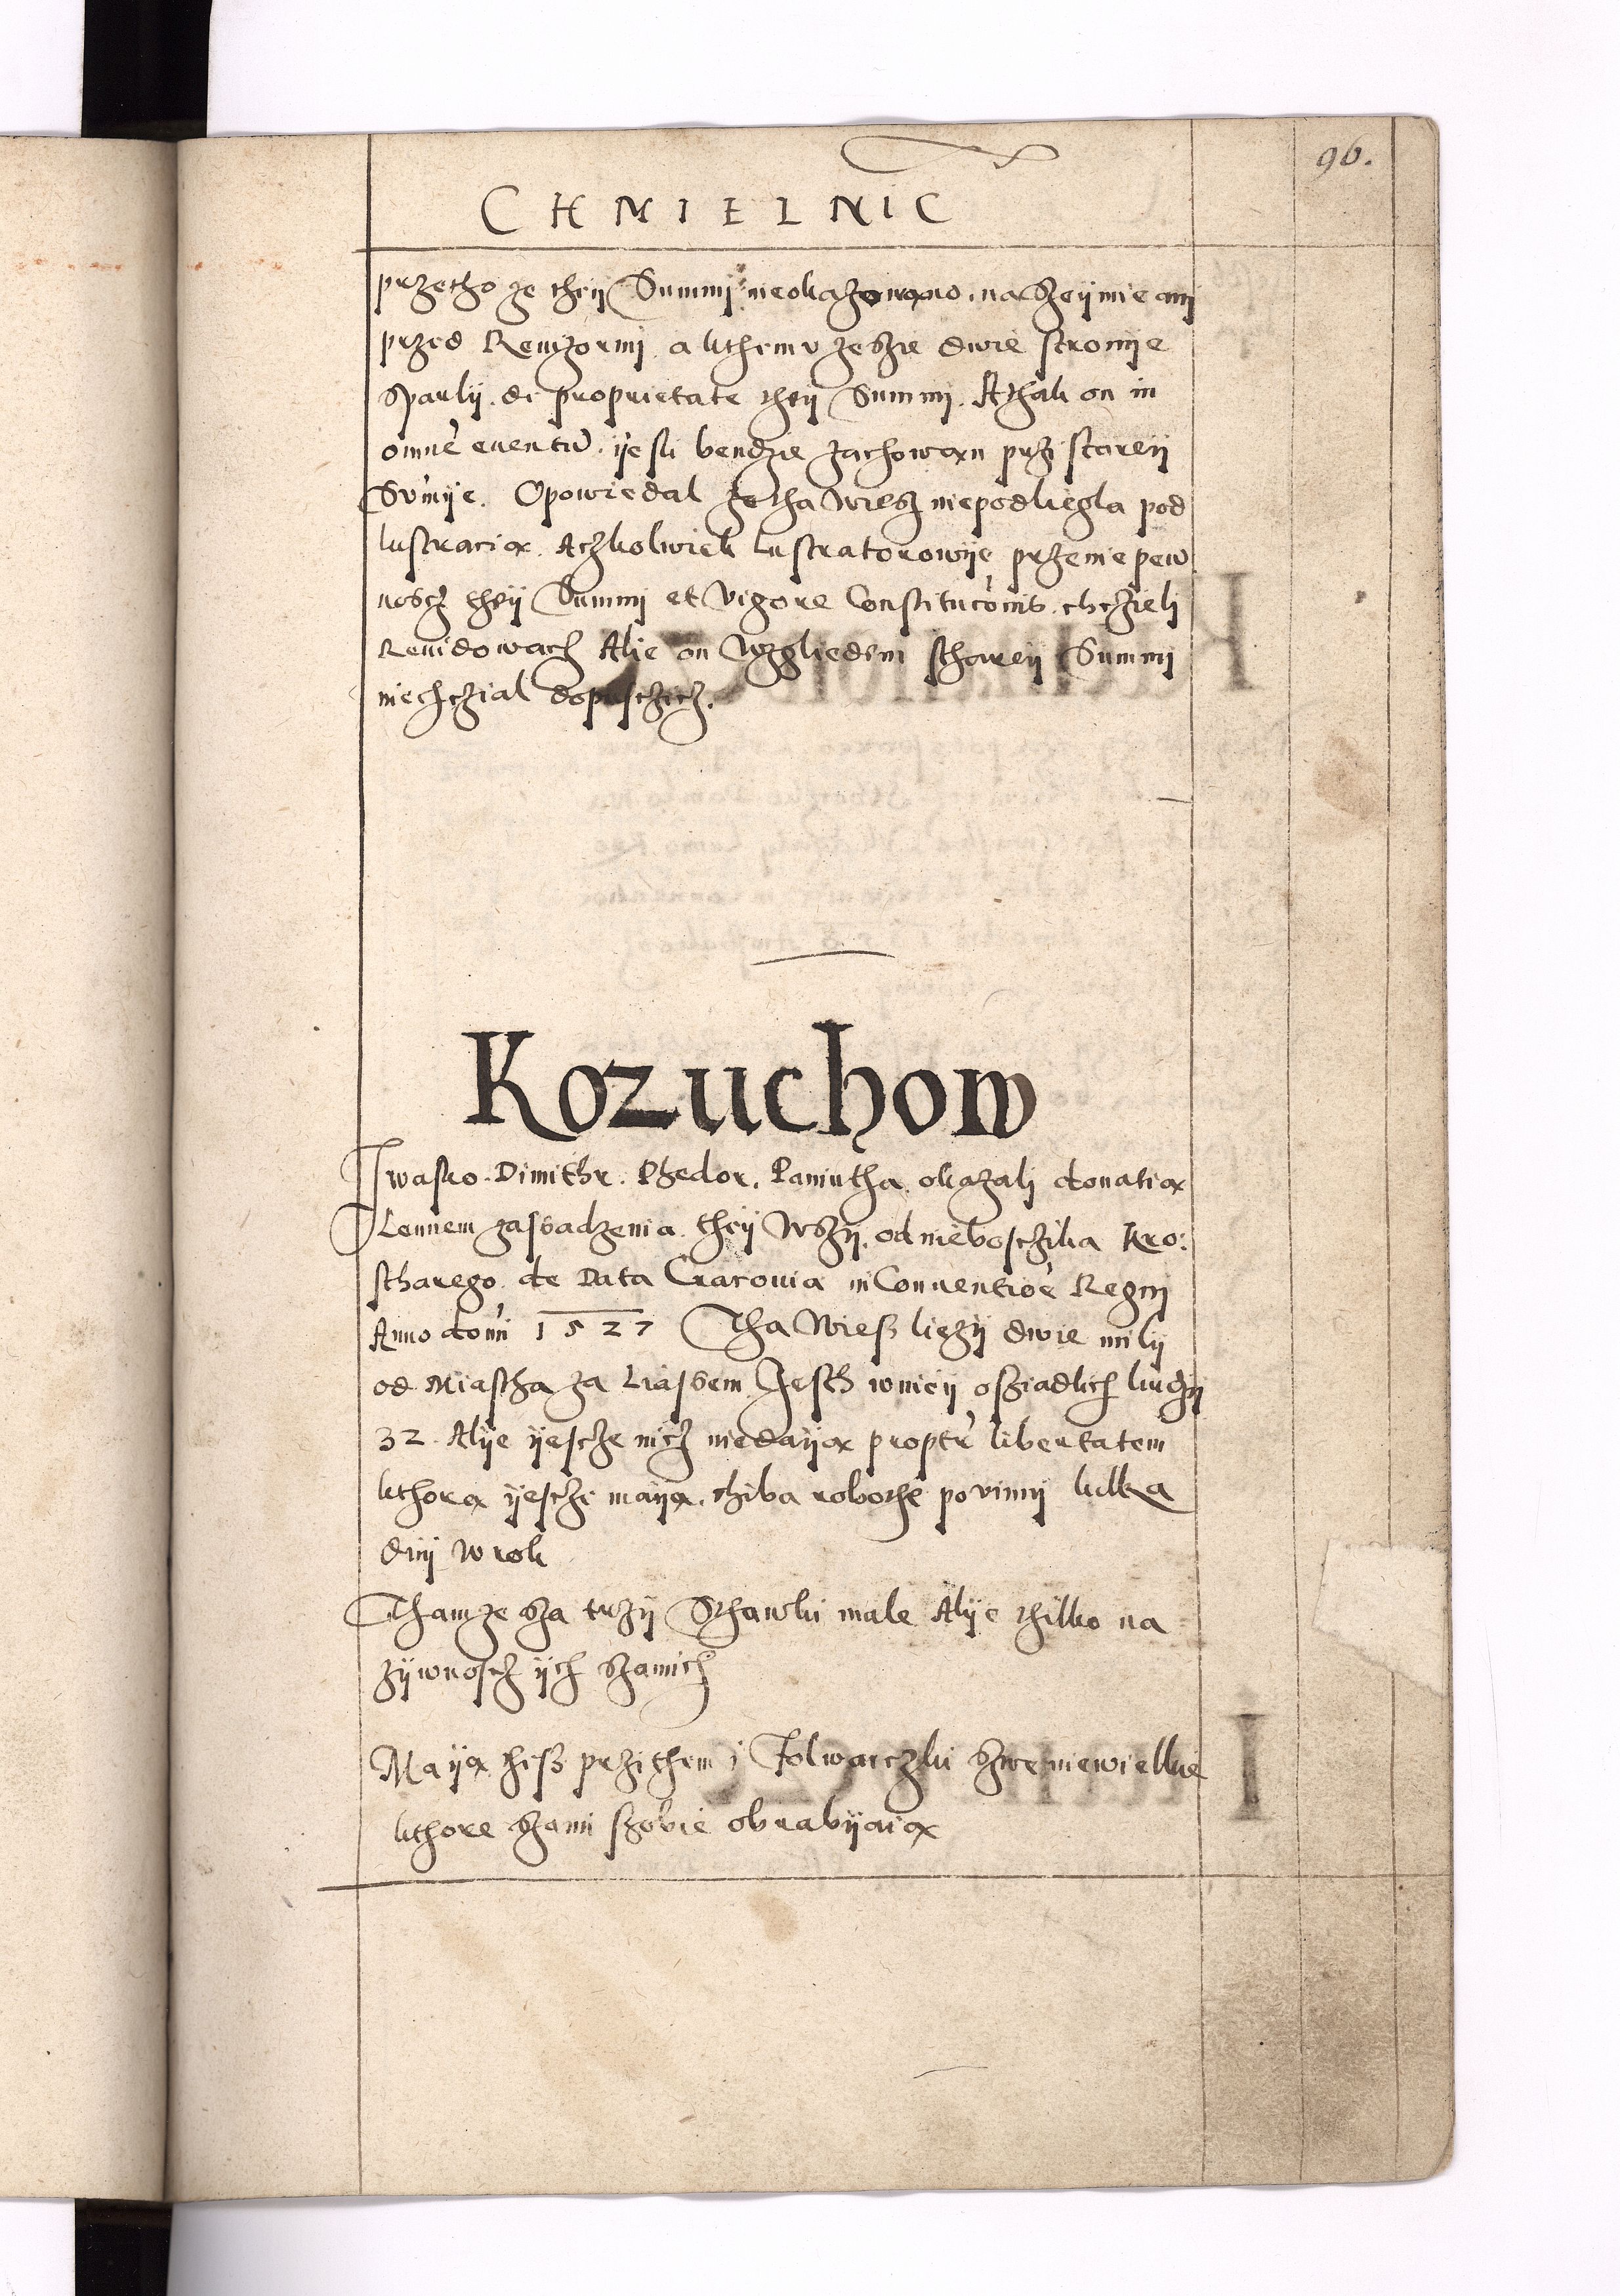 96.
CHMIELNIC
przetho ze theÿ Summÿ nieokazowano na Szeÿmie anÿ
przed Rewizormi a kthemu jesze dwie stronÿe
Sparlÿ de proprietate theÿ Summÿ. Athak on in
omnē euentū ÿesli bendzie zachowan przi stareÿ
Sūmÿe. Opowiedal ze tha wiesz niepodliegla pod
lustracią. Aczkolwiek lustratorowÿe prze niepew
noscz theÿ Summÿ et vigore Constitucōnis chczieli
Reuidowacz Alie on wzgliedem stareÿ Summÿ
niechczial dopusczicz.
Kozuchow
Iwasko. Dimithr. Phedor. Paniutha. okazali donatią
Lennem zasadzenia theÿ Wszÿ. od niebosczika Kro:
stharego. de Data Cracouia in Conuentiōe Regnÿ
Anno domi 1527 Tha Wies liezÿ dwie milÿ
od Miastha za Liassem Jesth wnieÿ osziadlich liudzÿ
32. Alÿe ÿescze nicz niedaÿą proptr libertatem
kthorą ÿescze maÿą. thiba robothe povinnÿ kilka
dnÿ w rok
Thamze sza trzÿ Sthawki male Alÿe thilko na
zÿwnoscz ÿch szamich
Maÿą thesz przithem i Folwarczki szwe niewielkie
kthore szami szobie obrabÿaią